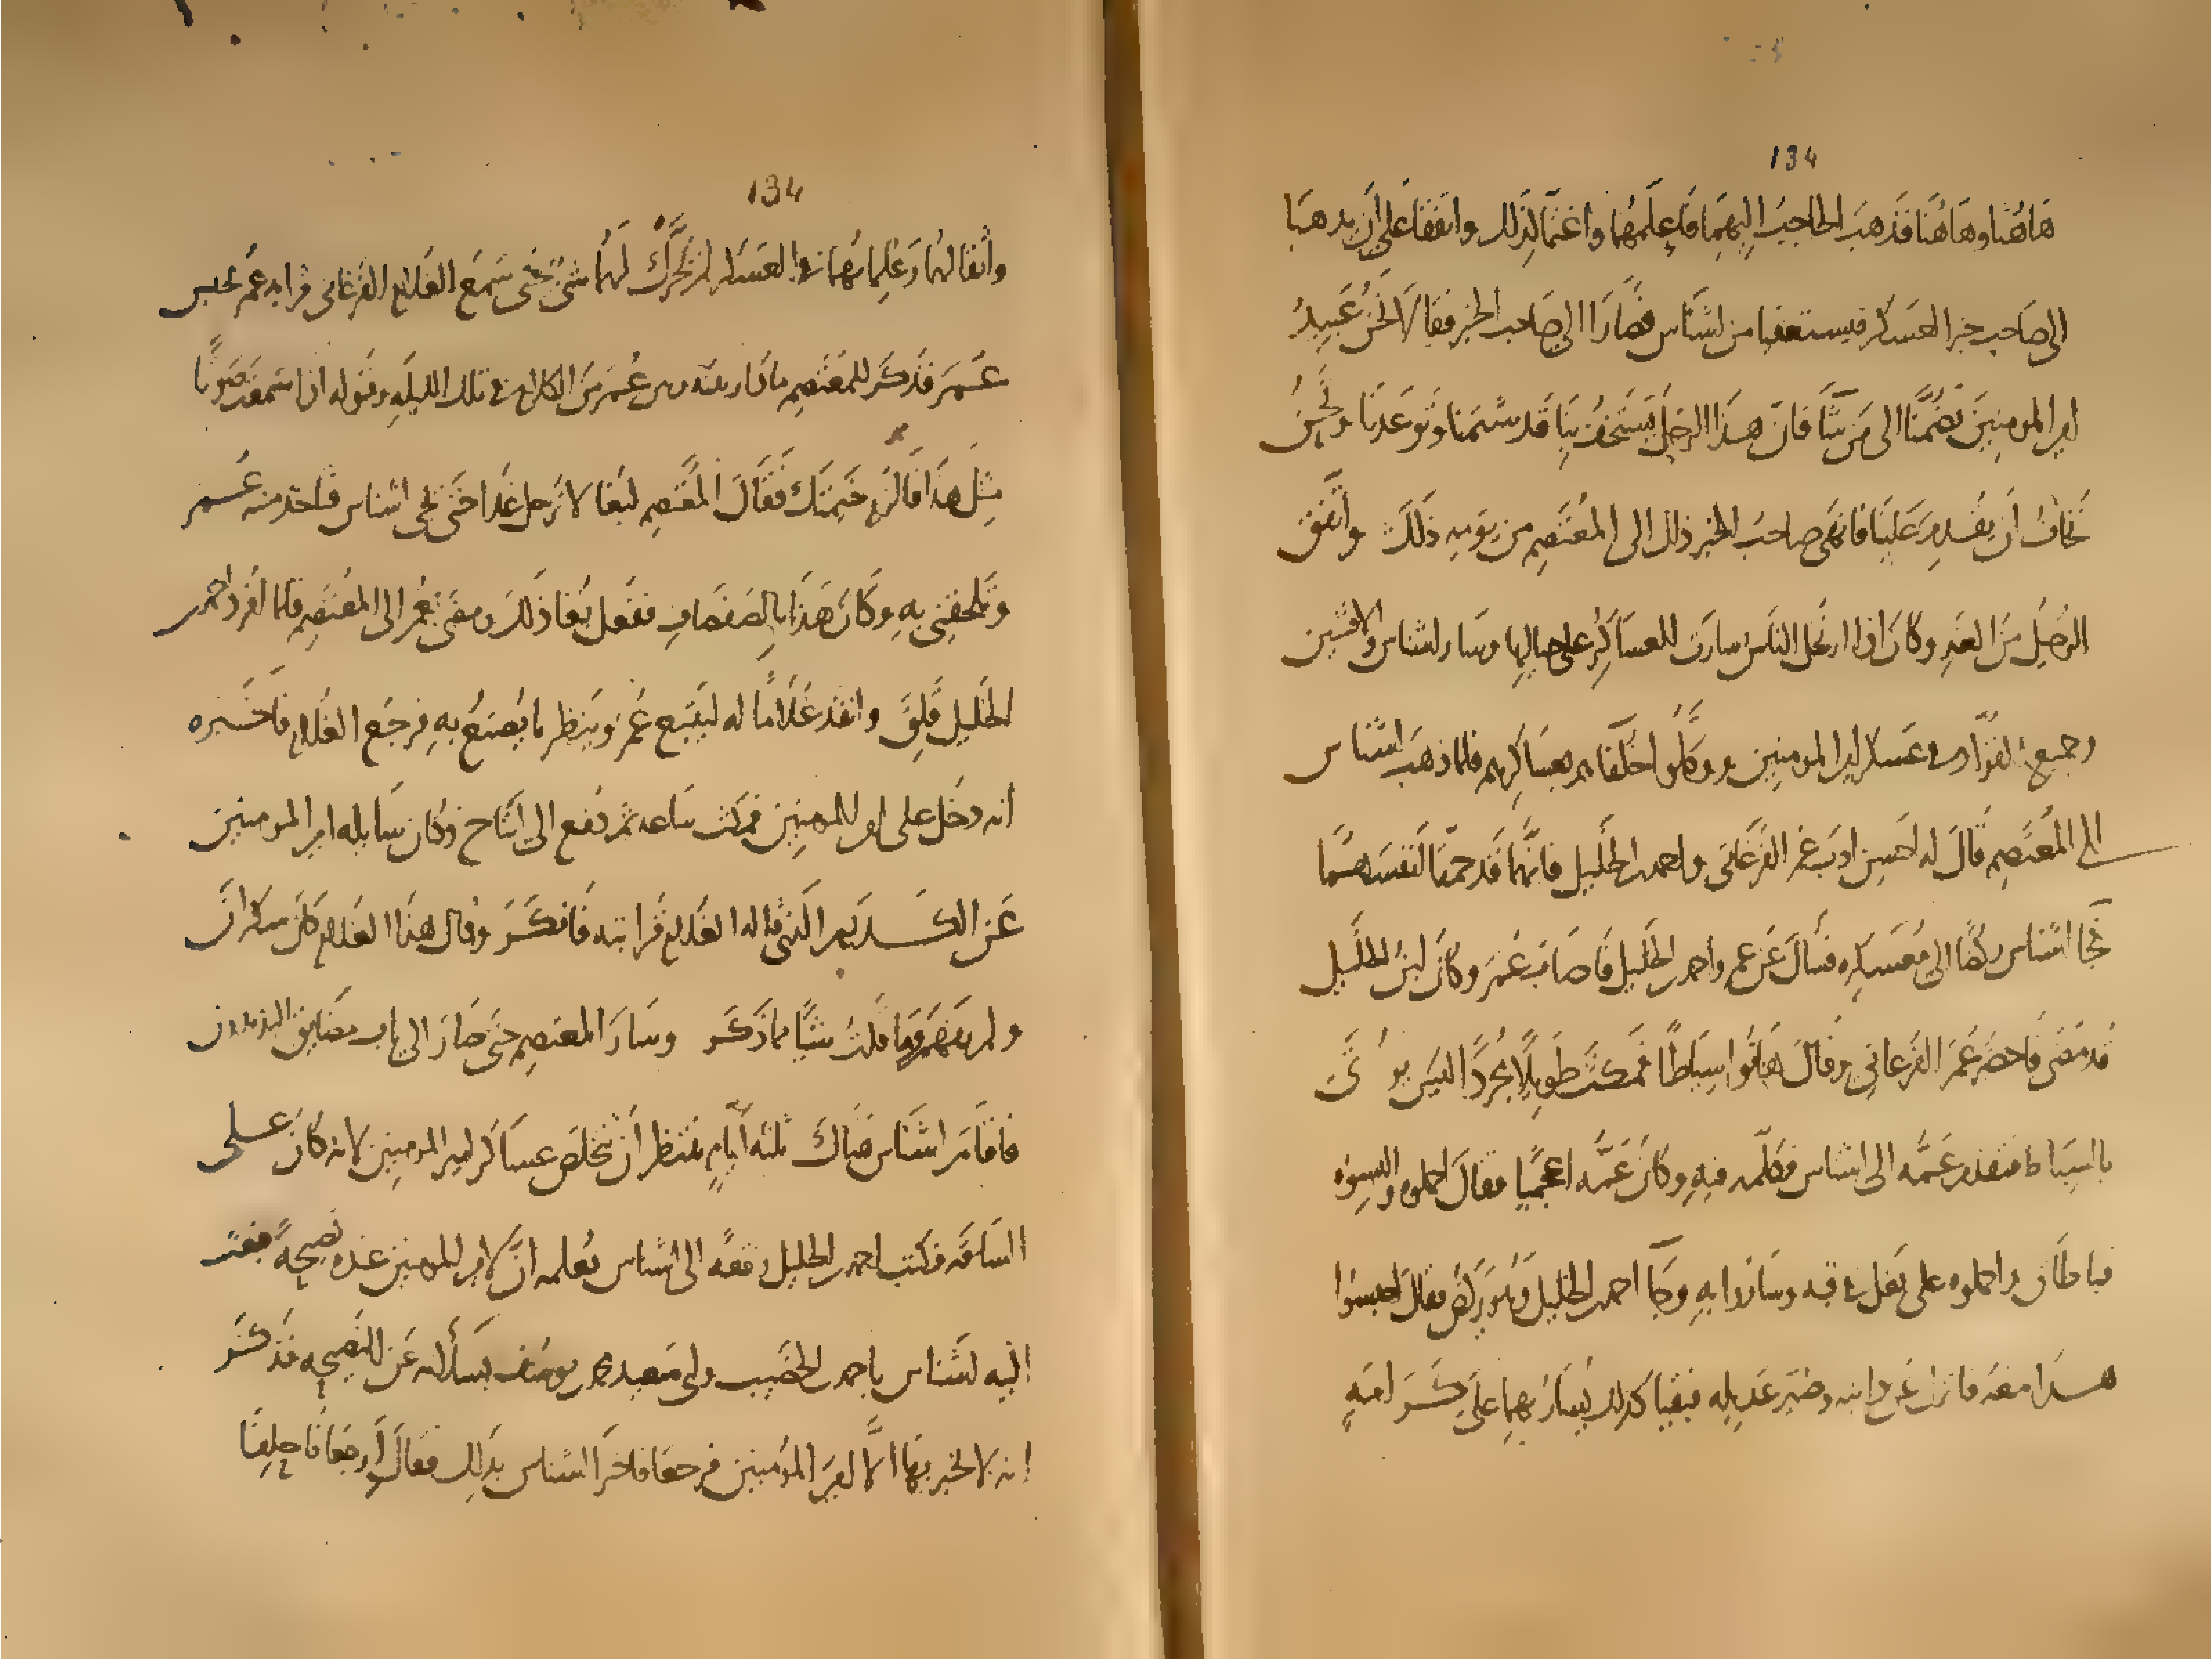 134
هَاهُنا وهَاهُنَا فذَهبَ الحاجبُ اليهِمَا فَاعلَمهُما واغتمّا لذلك واتفقَا على أن يذهبَا
الى صَاحب خبر العسكر فيستعفيا من اشناس فصَارَا الى صَاحب الخبر فقالا نحنُ عَبيدُ
امير المومنِينَ تضُمّنَا الى مَن شئتَ فان هذا الرجل يَستخفُ بنَا قد شتمنا وتوعَدنا ونحنُ
نخافُ أن يقدم عَلينَا فانهى صاحبُ الخبر ذلك الى المعْتَصِم من يَومِه ذلكَ واتفق
الرحيل مِن الغدِ وكان اذا ارتحل الناس سارت العساكر على حيالها وسَار اشناس والافشين
وجميع القوّاد في عسكر امير المومنين ووكّلوا خلفاءهم بعساكرهم فلما ذهَب اشناس
الى المعْتَصِم قال له احسن ادَب عمر الفرغَانى واحمد بن الخليل فانهما قد حمقا انفسهما
فجا اشناس ركضًا الى مُعَسكره فسأل عَن عمر واحمد بن الخليل فأصَابَ عُمَر وكان ابن الخليل
قد مَضى فاحضر عُمَر الفرغانى وقال هَاتوا سيَاطًا فمكث طَويلًا مُجردًا ليسَ يوتى
بالسيَاط فتقدم عَمّه الى اشناس فكلّمه فيه وكان عَمّه اعجَميًّا فقال احملوه والبسوه
قباطَاق واحملوه على بَغل في قبه وسَاروا بهِ وجَا احمد بن الخليل وهُو يركضُ فقال احبسوا
هذا معَهُ فانزل عَن دابته وصُيّر عَديله فبقيا كذلك يُسَارُ بهما على كَرَامَةٍ
134
واثقالهمَا وغلمانهما في العسكر لم يحَرَّك لهُما شئٌ حتى سَمع الغلام الفرغانى قرابه عمر بحبس
عُمَر فذكر للمعْتصِم مَا دار بينه وبين عُمَر مِن الكلام في تلك الليلَهِ وقوله اذا سَمعتَ صَوتًا
مثلَ هذا فالزم خيمتك فقال المُعْتصِم لبُغا لا ترحل غدًا حتى تجى اشناس فتاخذ منه عُمر
وتلحقني بهِ وكانَ هَذا بالصَفصَافِ ففعل بُغا ذلك ومضَى بعُمر الى المعْتَصم فلما انفرد احمد بن
الخليل قلقَ وانفذ غلامًا له ليتبع عُمَر وينظر ما يُصنَعُ بهِ فرجَع الغلام فاخبره
أنه دخَل على امير المومنِين فمكث سَاعه ثم دُفع الى ايتاخ وكان سَايله امير المومنين
عَن الكلام الذى قاله الغلام قرابته فانكر وقال هذا الغلام كان سكرَان
ولم يفهَم وما قلتُ شيًا مما ذكر وسَارَ المعتصِم حتى صَار الى باب مضايق البذندون
فاقامَ اشناس هناك ثلثه أيام ينتظر أن تخلّص عسَاكر امير المومنِين لانه كان على
السَاقه فكتب احمد بن الخليل رقعَه الى اشناس يُعلمه انّ لامير المومنين عنده نصيحَة فبعث
اليه اشناس باحمد بن الخصيب وابى سَعيد محمد بن يوسُف يسألانه عَن النصيحه فذكر
انه لا يخبر بها الا امير المؤمنين فرجعَا فاخبرا اشناس بذلك فقال ارجعَا فاحلِفَا